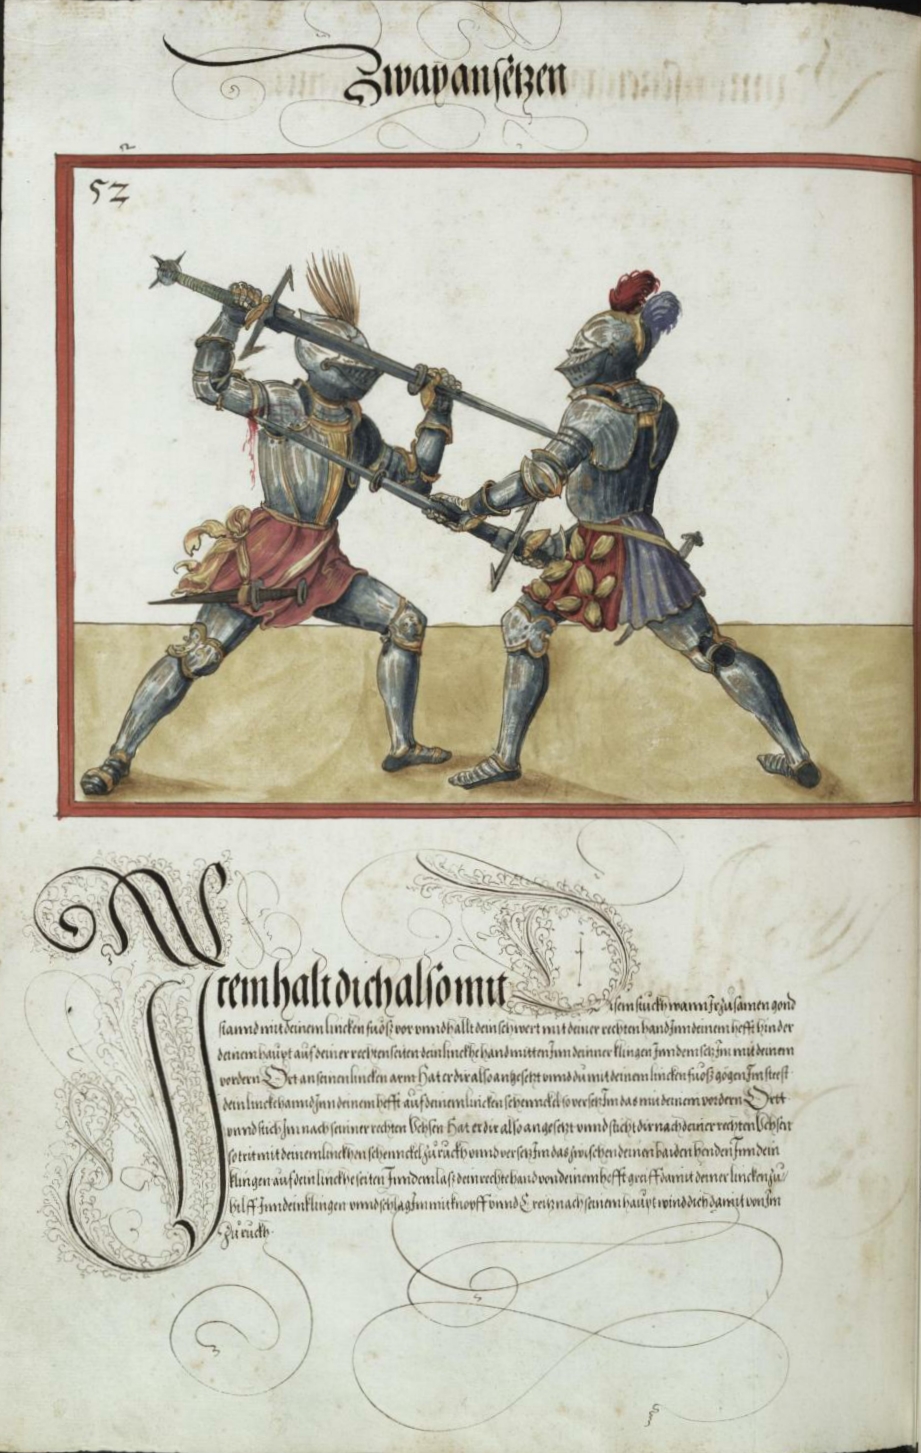 Zwaÿ ansetzen
52
Item halt dich also mit Disem stuckh wann Ir zůsamen gond
stannd mit deinem lincken fuoß vor vnnd hallt dein schwert mit deiner rechten hand Inn deinem hefft hinder
deinem haupt auf deiner rechten seiten dein linckhe hand mitten Inn deinner klingen Inn dem setz Im mit deinem
vordern Ort an seinen lincken arm Hat er dir also angesetzt vnnd du mit deinem lincken fuoß gogen Im steest
dein lincke hannd Inn deinem hefft auf deinem lincken schennckel so versetz Im das mit deinem vordern Ortt
vnnd stich Im nach seinner rechten Vchsen Hat er dir also angesetzt vnnd sticht dir nach deiner rechten Vchsen
so trit mit deinem linckhen schennckel zů růckh vnnd versetz Im das zwischen deinen baiden henden Inn dein
klingen auf dein linckhe seiten Inn dem laß dein rechte hand von deinem hefft greiff damit deiner lincken zů
hilff Inn dein klingen vnnd schlag Im mit knopff vnnd Creitz nach seinem haupt wind dich damit von Im
zů rückh